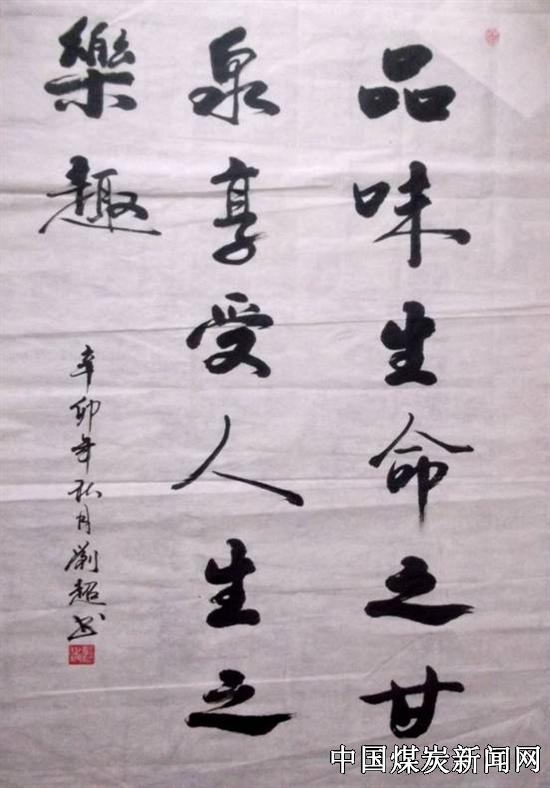 品味生命之甘
泉享受人生之
樂趣
辛卯年秋月劉超书
中国煤炭新闻网